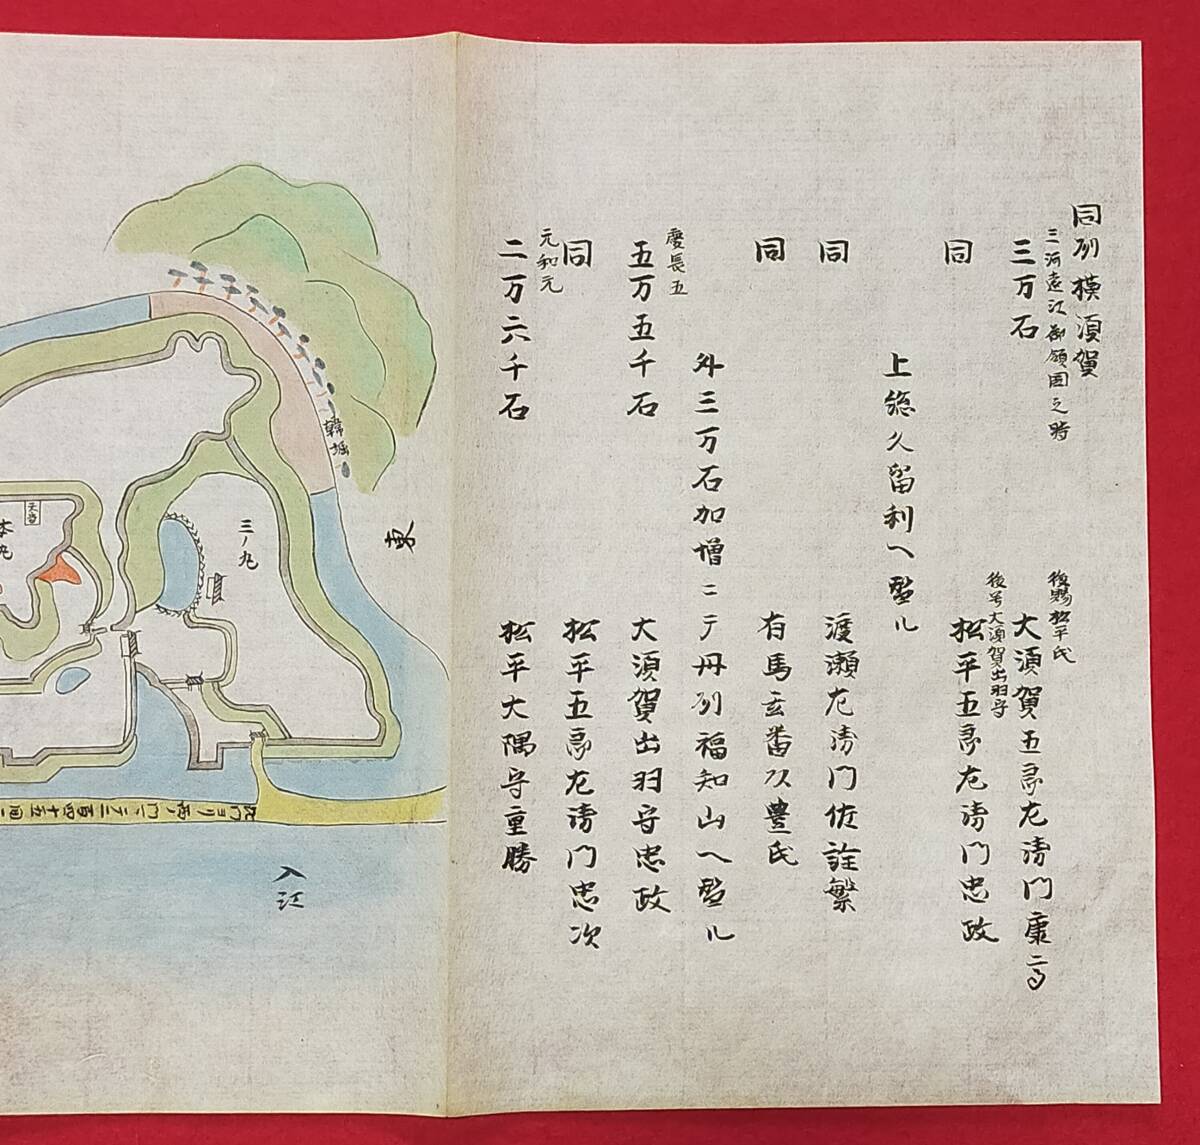 同州横須賀
三河遠江御領国之時
三万石
後賜松平氏
大須賀五郎左衛門康高
同
後号大須賀出羽守
松平五郎左衛門忠政
上総久留利へ ル
同 渡瀬左衛門佐詮繁
同 有馬玄番頭豊氏
外三万石加増ニテ丹州福知山へ ル
慶長五
五万五千石 大須賀出羽守忠政
同 松平五郎左衛門忠次
元和元
二万六千石 松平大隅守重勝
東
堀
三ノ丸
天守
本丸
入江
此門ヨリ西ノ門マテ二百四十五间